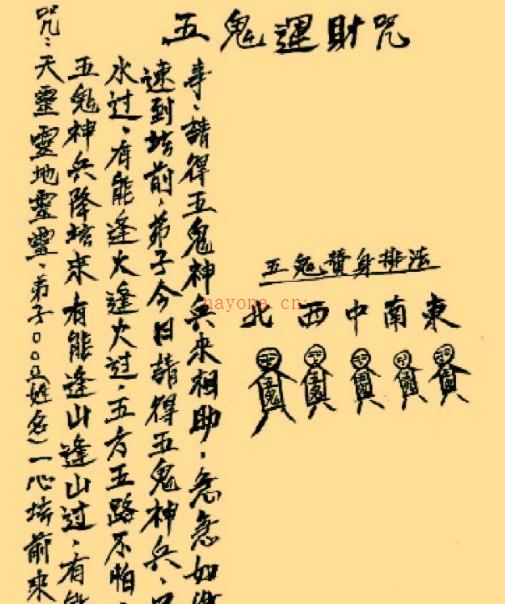 五鬼運財咒
咒：天靈靈地靈靈，弟子○○○（姓名）一心坛前来
五鬼神兵降坛来有能逢山逢山过，有能
水过，有能逢火逢火过，五方五路不怕，
速到坛前，弟子今日請得五鬼神兵，
事，請得五鬼神兵來相助，急急如律
五鬼替身排法
北西中南東
五鬼 五鬼 五鬼 五鬼 五鬼
nayona.cn